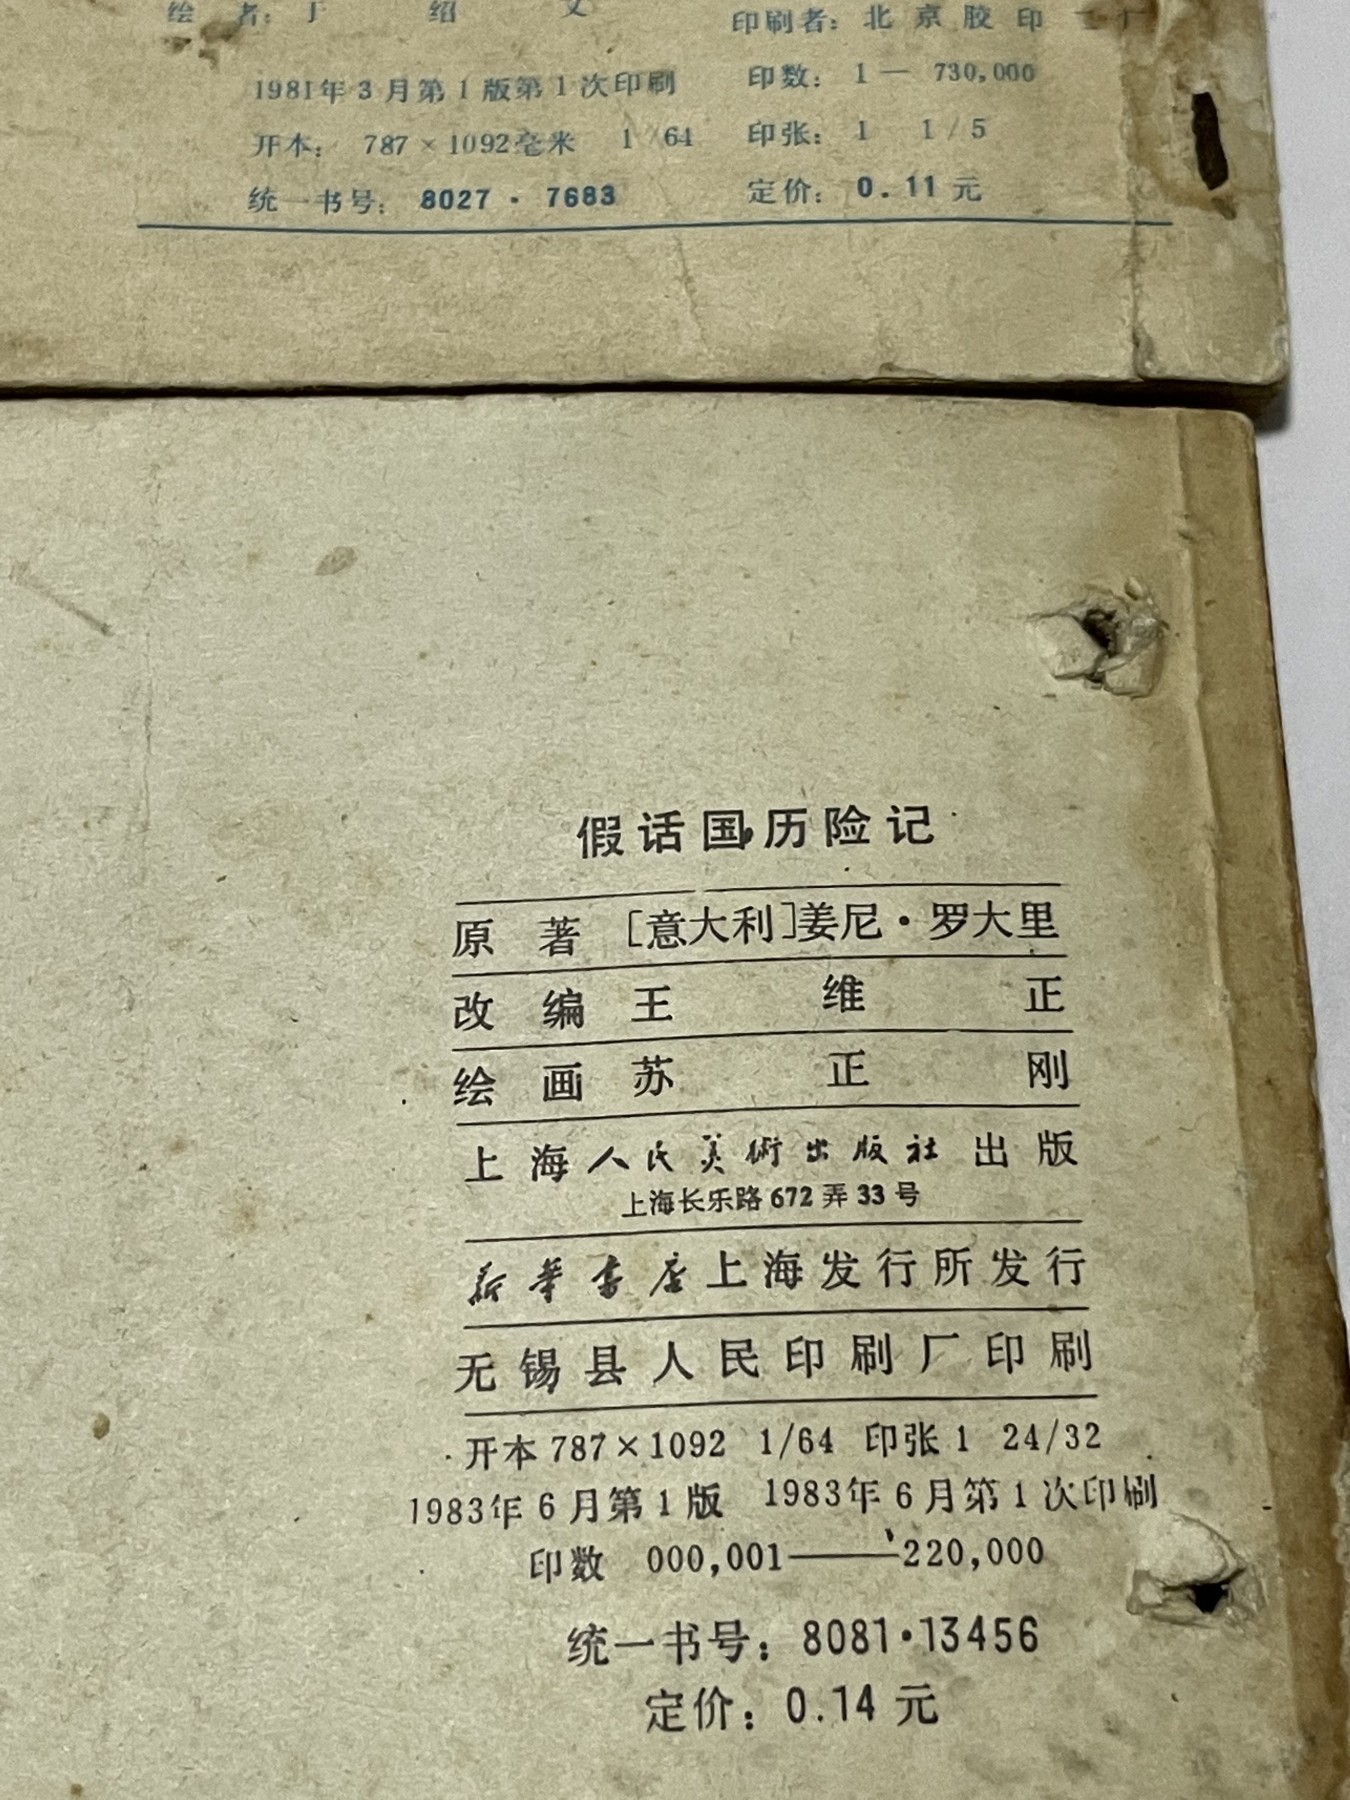 绘 者：于 绍 文
印刷者：北 京 胶 印 二 厂
1981年3月第1版第1次印刷
印数：1 — 730,000
开本： 787×1092毫米 1/64
印张：1 1/5
统一书号：8027·7683
定价：0.11元
假话国历险记
原 著 [意大利]姜尼·罗大里
改 编 王 维 正
绘 画 苏 正 刚
上海人民美術出版社 出版
上海长乐路672弄33号
新華書店上海发行所发行
无锡县人民印刷厂印刷
开本787×1092 1/64 印张1 24/32
1983年6月第1版 1983年6月第1次印刷
印数 000,001——220,000
统一书号：8081·13456
定价：0.14元